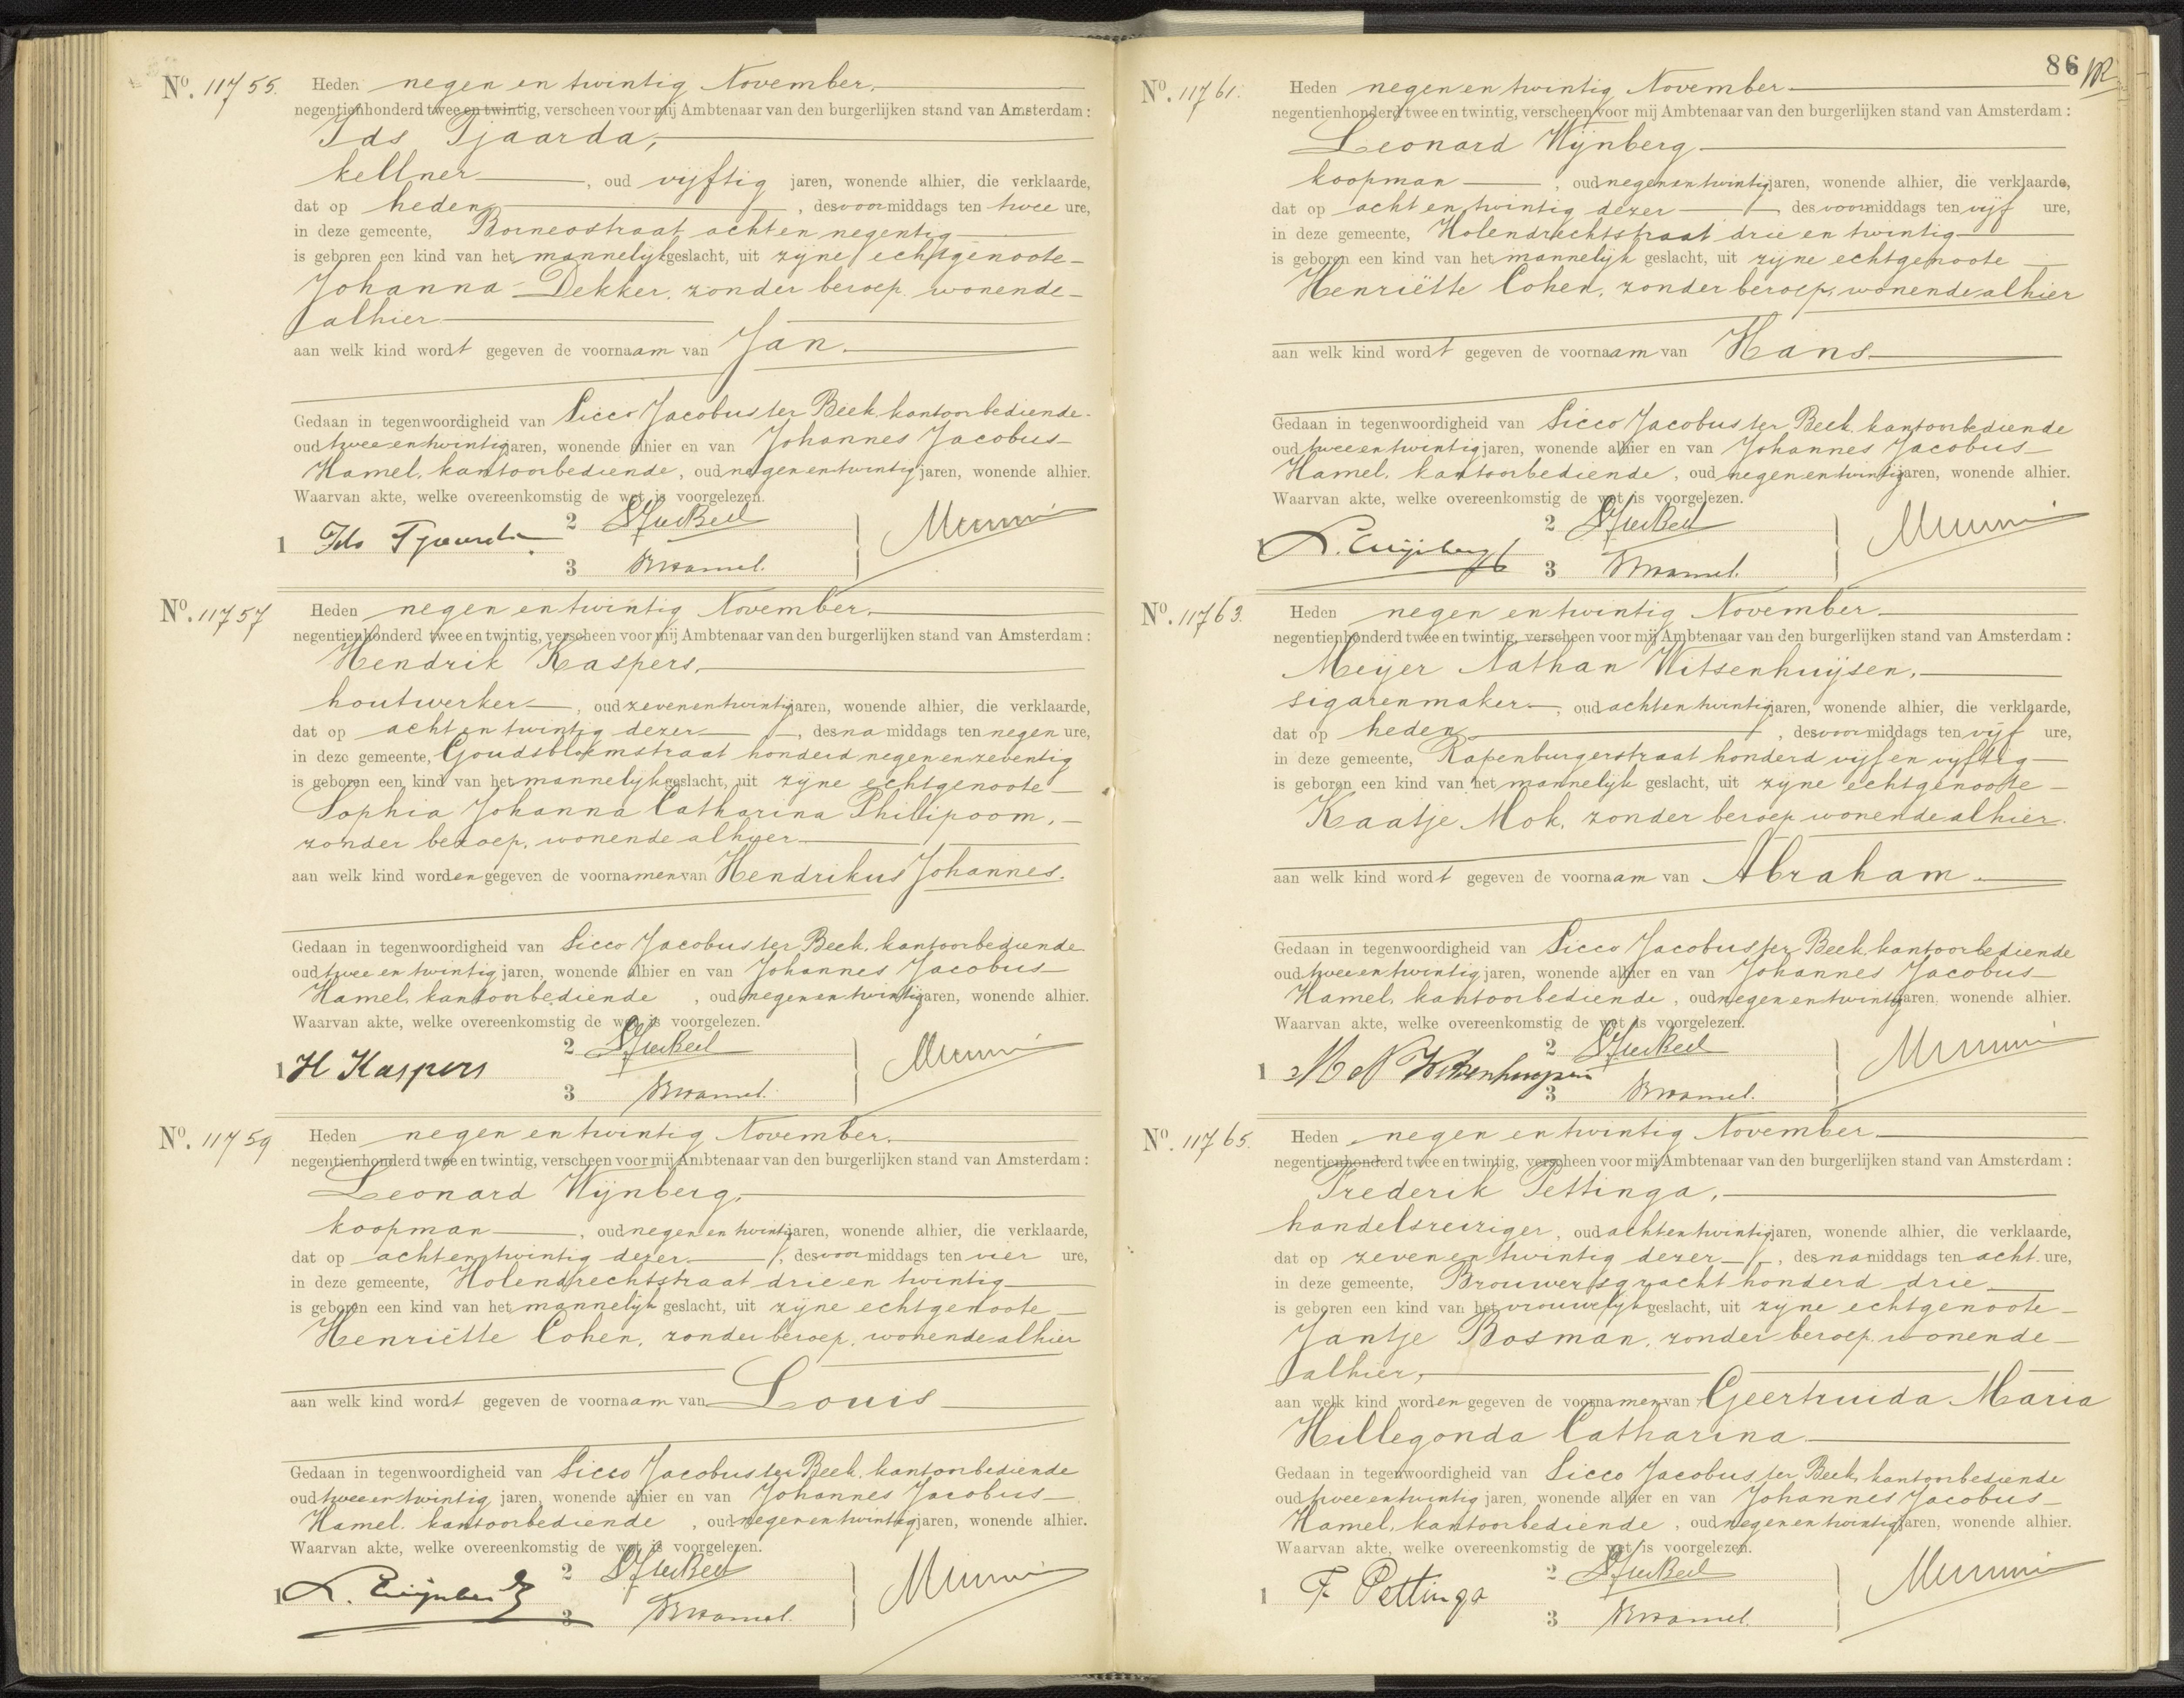 Nº. 11755. Heden negen en twintig November.
negentienhonderd twee en twintig, verscheen voor mij Ambtenaar van den burgerlijken stand van Amsterdam:
Ids Tjaarda,
kellner, oud vijftig jaren, wonende alhier, die verklaarde,
dat op heden, des voormiddags ten twee ure,
in deze gemeente, Borneostraat acht en negentig
is geboren een kind van het mannelijk geslacht, uit zijne echtgenoote
Johanna Dekker, zonder beroep, wonende
alhier
aan welk kind wordt gegeven de voornaam van Jan.
Gedaan in tegenwoordigheid van Sicco Jacobus ter Beek, kantoorbediende
oud twee en twintig jaren, wonende alhier en van Johannes Jacobus
Hamel, kantoorbediende, oud negen en twintig jaren, wonende alhier.
Waarvan akte, welke overeenkomstig de wet is voorgelezen.
1 Ids Tjaarda 2 SJterBeek
3 Hamel.
Nº. 11757 Heden negen en twintig November.
negentienhonderd twee en twintig, verscheen voor mij Ambtenaar van den burgerlijken stand van Amsterdam:
Hendrik Kaspers,
houtwerker, oud zeven en twintig jaren, wonende alhier, die verklaarde,
dat op acht en twintig dezer, des namiddags ten negen ure,
in deze gemeente, Goudsbloemstraat honderd negen en zeventig
is geboren een kind van het mannelijk geslacht, uit zijne echtgenoote
Sophia Johanna Catharina Phillipoom,
zonder beroep, wonende alhier
aan welk kind worden gegeven de voornamen van Hendrikus Johannes.
Gedaan in tegenwoordigheid van Sicco Jacobus ter Beek, kantoorbediende
oud twee en twintig jaren, wonende alhier en van Johannes Jacobus
Hamel, kantoorbediende, oud negen en twintig jaren, wonende alhier.
Waarvan akte, welke overeenkomstig de wet is voorgelezen.
1 H Kaspers 2 SJterBeek
3 Hamel.
Nº. 11759 Heden negen en twintig November.
negentienhonderd twee en twintig, verscheen voor mij Ambtenaar van den burgerlijken stand van Amsterdam:
Leonard Wijnberg,
koopman, oud negen en twintig jaren, wonende alhier, die verklaarde,
dat op acht en twintig dezer, des voormiddags ten vier ure,
in deze gemeente, Holendrechtstraat drie en twintig
is geboren een kind van het mannelijk geslacht, uit zijne echtgenoote
Henriëtte Cohen, zonder beroep, wonende alhier
aan welk kind wordt gegeven de voornaam van Louis
Gedaan in tegenwoordigheid van Sicco Jacobus ter Beek, kantoorbediende
oud twee en twintig jaren, wonende alhier en van Johannes Jacobus
Hamel, kantoorbediende, oud negen en twintig jaren, wonende alhier.
Waarvan akte, welke overeenkomstig de wet is voorgelezen.
1 L. Wijnberg 2 SJterBeek
3 Hamel.
86
Nº. 11761. Heden negen en twintig November
negentienhonderd twee en twintig, verscheen voor mij Ambtenaar van den burgerlijken stand van Amsterdam:
Leonard Wijnberg
koopman, oud negen en twintig jaren, wonende alhier, die verklaarde,
dat op acht en twintig dezer des voormiddags ten vijf ure,
in deze gemeente, Holendrechtstraat drie en twintig
is geboren een kind van het mannelijk geslacht, uit zijne echtgenoote
Henriëtte Cohen, zonder beroep, wonende alhier
aan welk kind wordt gegeven de voornaam van Hans
Gedaan in tegenwoordigheid van Sicco Jacobus ter Beek, kantoorbediende
oud twee en twintig jaren, wonende alhier en van Johannes Jacobus
Hamel, kantoorbediende, oud negen en twintig jaren, wonende alhier.
Waarvan akte, welke overeenkomstig de wet is voorgelezen.
1 L. Wijnberg 2 SJterBeek
3 Hamel.
Nº. 11763. Heden negen en twintig November
negentienhonderd twee en twintig, verscheen voor mij Ambtenaar van den burgerlijken stand van Amsterdam:
Meijer Nathan Witsenhuijsen,
sigarenmaker, oud acht en twintig jaren, wonende alhier, die verklaarde,
dat op heden, des voormiddags ten vijf ure,
in deze gemeente, Rapenburgerstraat honderd vijf en vijftig
is geboren een kind van het mannelijk geslacht, uit zijne echtgenoote
Kaatje Mok, zonder beroep wonende alhier.
aan welk kind wordt gegeven de voornaam van Abraham.
Gedaan in tegenwoordigheid van Sicco Jacobus ter Beek, kantoorbediende
oud twee en twintig jaren, wonende alhier en van Johannes Jacobus
Hamel, kantoorbediende, oud negen en twintig jaren, wonende alhier.
Waarvan akte, welke overeenkomstig de wet is voorgelezen.
1 M N Witsenhuijsen 2 SJterBeek
3 Hamel.
Nº. 11765. Heden negen en twintig November
negentienhonderd twee en twintig, verscheen voor mij Ambtenaar van den burgerlijken stand van Amsterdam:
Frederik Pettinga,
handelsreiziger, oud acht en twintig jaren, wonende alhier, die verklaarde,
dat op zeven en twintig dezer, des namiddags ten acht ure,
in deze gemeente, Brouwersgracht honderd drie
is geboren een kind van het vrouwelijk geslacht, uit zijne echtgenoote
Jantje Bosman, zonder beroep, wonende
alhier,
aan welk kind worden gegeven de voornamen van Geertruida Maria
Hillegonda Catharina
Gedaan in tegenwoordigheid van Sicco Jacobus ter Beek, kantoorbediende
oud twee en twintig jaren, wonende alhier en van Johannes Jacobus
Hamel, kantoorbediende, oud negen en twintig jaren, wonende alhier.
Waarvan akte, welke overeenkomstig de wet is voorgelezen.
1 F. Pettinga 2 SJterBeek
3 Hamel.